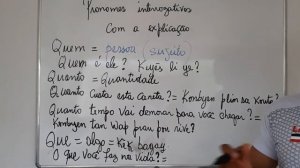 Pronomes interrogativos
Com a explicação
Quem = pessoa (sujeito)
Quem é ele? Kiyès li ye?
Quanto = Quantidade
Quanto custa esta caneta? = Konbyen plim sa koute?
Quanto tempo vai demorar para você chegar? =
Konbyen tan wap pran pou rive?
Que = algo = Kek bagay
O que você faz na vida? =